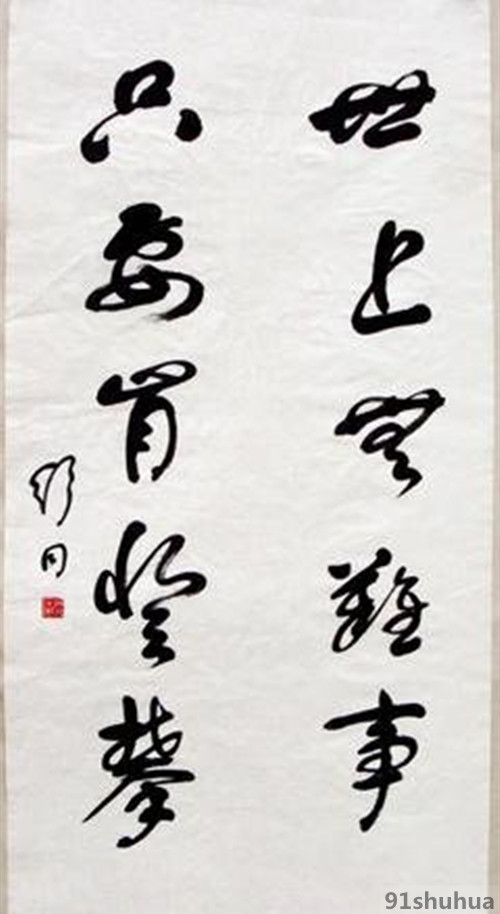 世上無難事
只要肯登攀
舒同
91shuhua